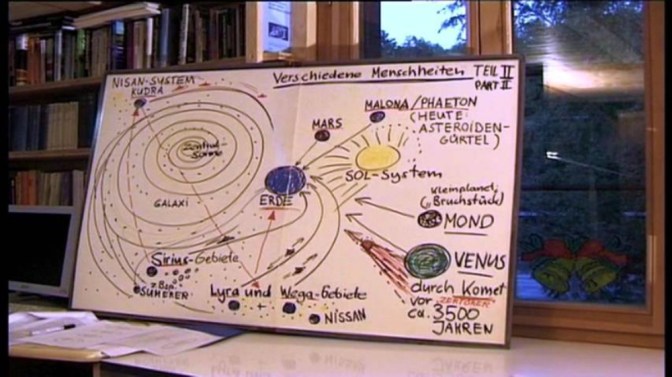 Verschiedene Menschheiten TEIL II
PART II
NISAN-SYSTEM
KUDRA
MALONA/PHAETON
(HEUTE:
ASTEROIDEN-
GÜRTEL)
MARS
Zentral-
sonne
SOL-System
GALAXI
ERDE
Kleinplanet
("Bruchstück)
MOND
VENUS
durch Komet
vor ZERSTÖRER
ca. 3500
JAHREN
Sirius-Gebiete
z.B.
SUMERER
Lyra und Wega-Gebiete
NISSAN